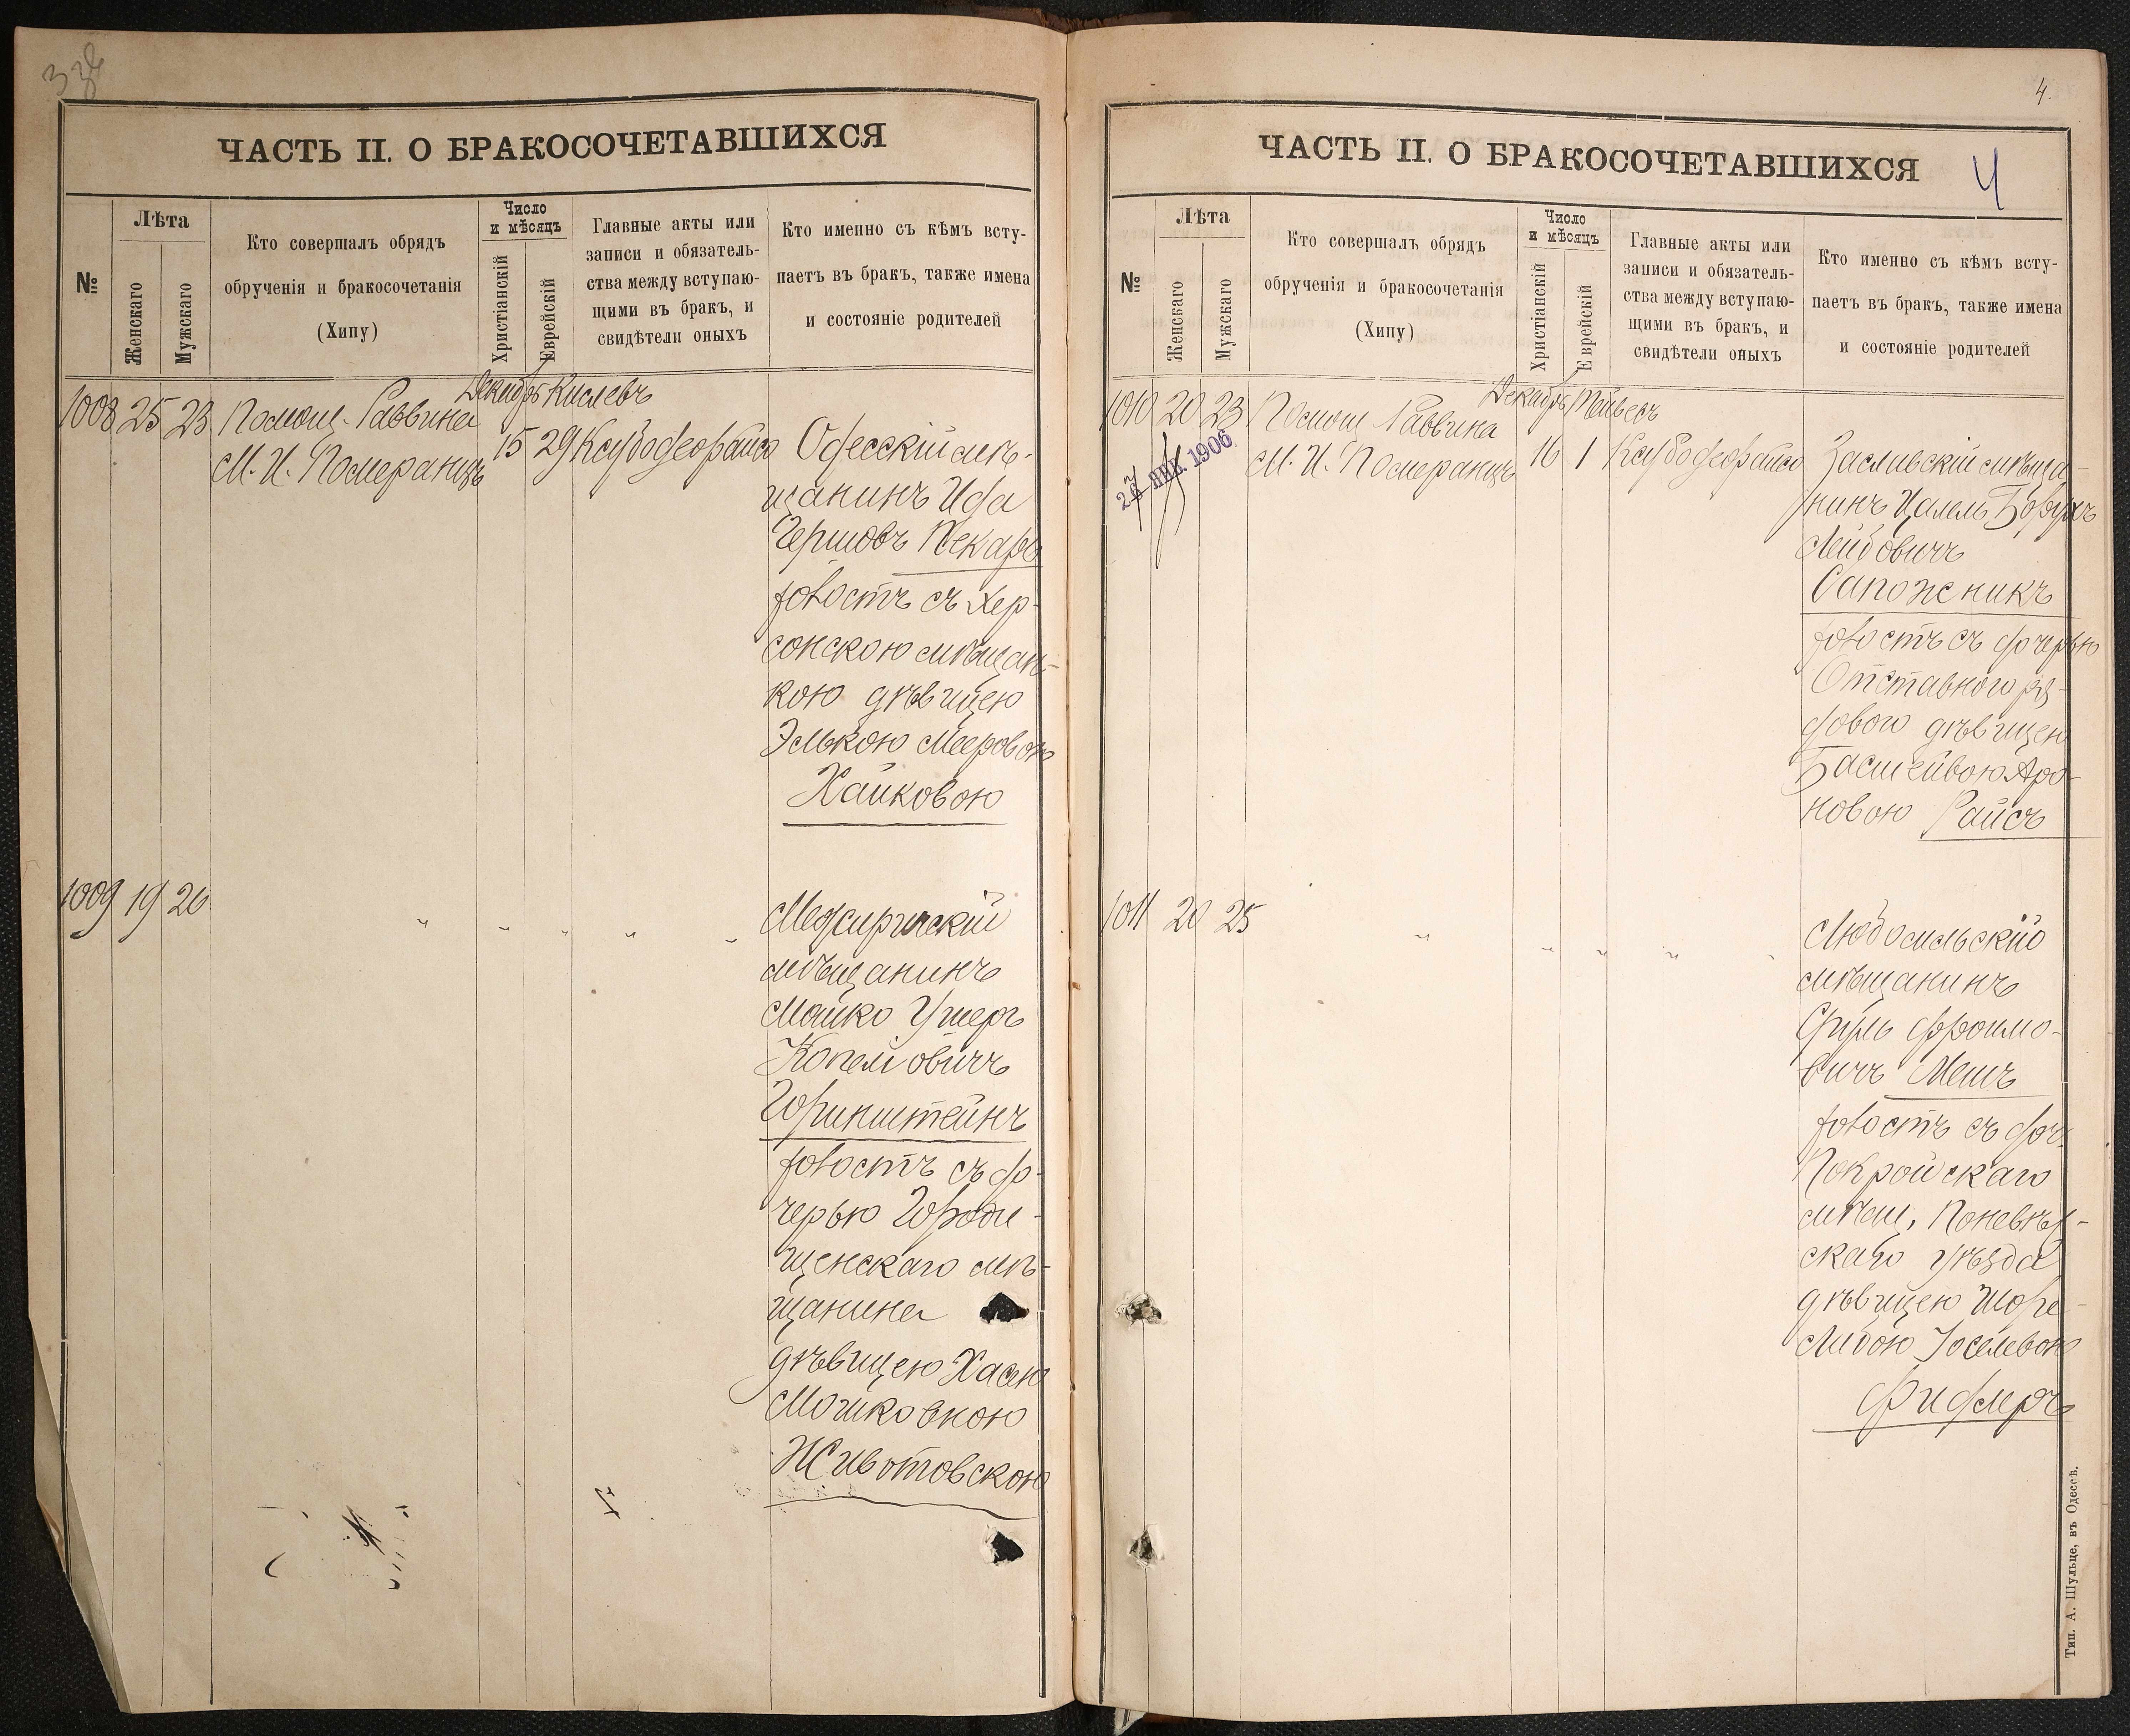 ЧАСТЬ II. О БРАКОСОЧЕТАВШИХСЯ
№
Лѣта
Женскаго
Мужскаго
Кто совершалъ обрядъ
обрученія и бракосочетанія
(Хипу)
Число
и мѣсяцъ
Христіанскій
Еврейскій
Главные акты или
записи и обязатель-
ства между вступаю-
щими въ бракъ, и
свидѣтели оныхъ
Кто именно съ кѣмъ всту-
паетъ въ бракъ, также имена
и состояніе родителей
Декабрь Кислевъ
1008 25 23 Помощ. Раввина
М. И. Померанцъ
15 29
Одесскій мѣ-
щанинъ
Гершовъ Пекарь
холостъ съ Хер-
сонскою мѣщан-
кою дѣвицею
Элькою Мееровою
Хаиковою
1009 19 26 " " " " "
Межиричскій
мѣщанинъ
Мошко Ушеръ
Копелiовичъ
Горинштейнъ
холостъ съ до-
черью Городи-
щенскаго мѣ-
щанина
дѣвицею Хасею
Мошковною
Животовскою
4.
ЧАСТЬ II. О БРАКОСОЧЕТАВШИХСЯ
4
№
Лѣта
Женскаго
Мужскаго
Кто совершалъ обрядъ
обрученія и бракосочетанія
(Хипу)
Число
и мѣсяцъ
Христіанскій
Еврейскій
Главные акты или
записи и обязатель-
ства между вступаю-
щими въ бракъ, и
свидѣтели оныхъ
Кто именно съ кѣмъ всту-
паетъ въ бракъ, также имена
и состояніе родителей
Декабрь Тейвесъ
1010 20 23 Помощ Раввина
М. И. Померанцъ
16 1
ЯНВ. 1906
Заславскій мѣща-
нинъ Цалель Борухъ
Лейбовичъ
Сапожникъ
холостъ съ дочерью
Отставного ря-
дового дѣвицею
Басшейвою Аро-
новою Райсъ
1011 20 25 " " " " "
Любомльскій
мѣщанинъ
Сруль Фроимо-
вичъ Мешъ
холостъ съ доч.
Покройскаго
мѣщ. Поневѣж-
скаго уѣзда
дѣвицею Шоре-
Либою Іоселевою
Фидлеръ
Тип. А. Шульце, въ Одессѣ.